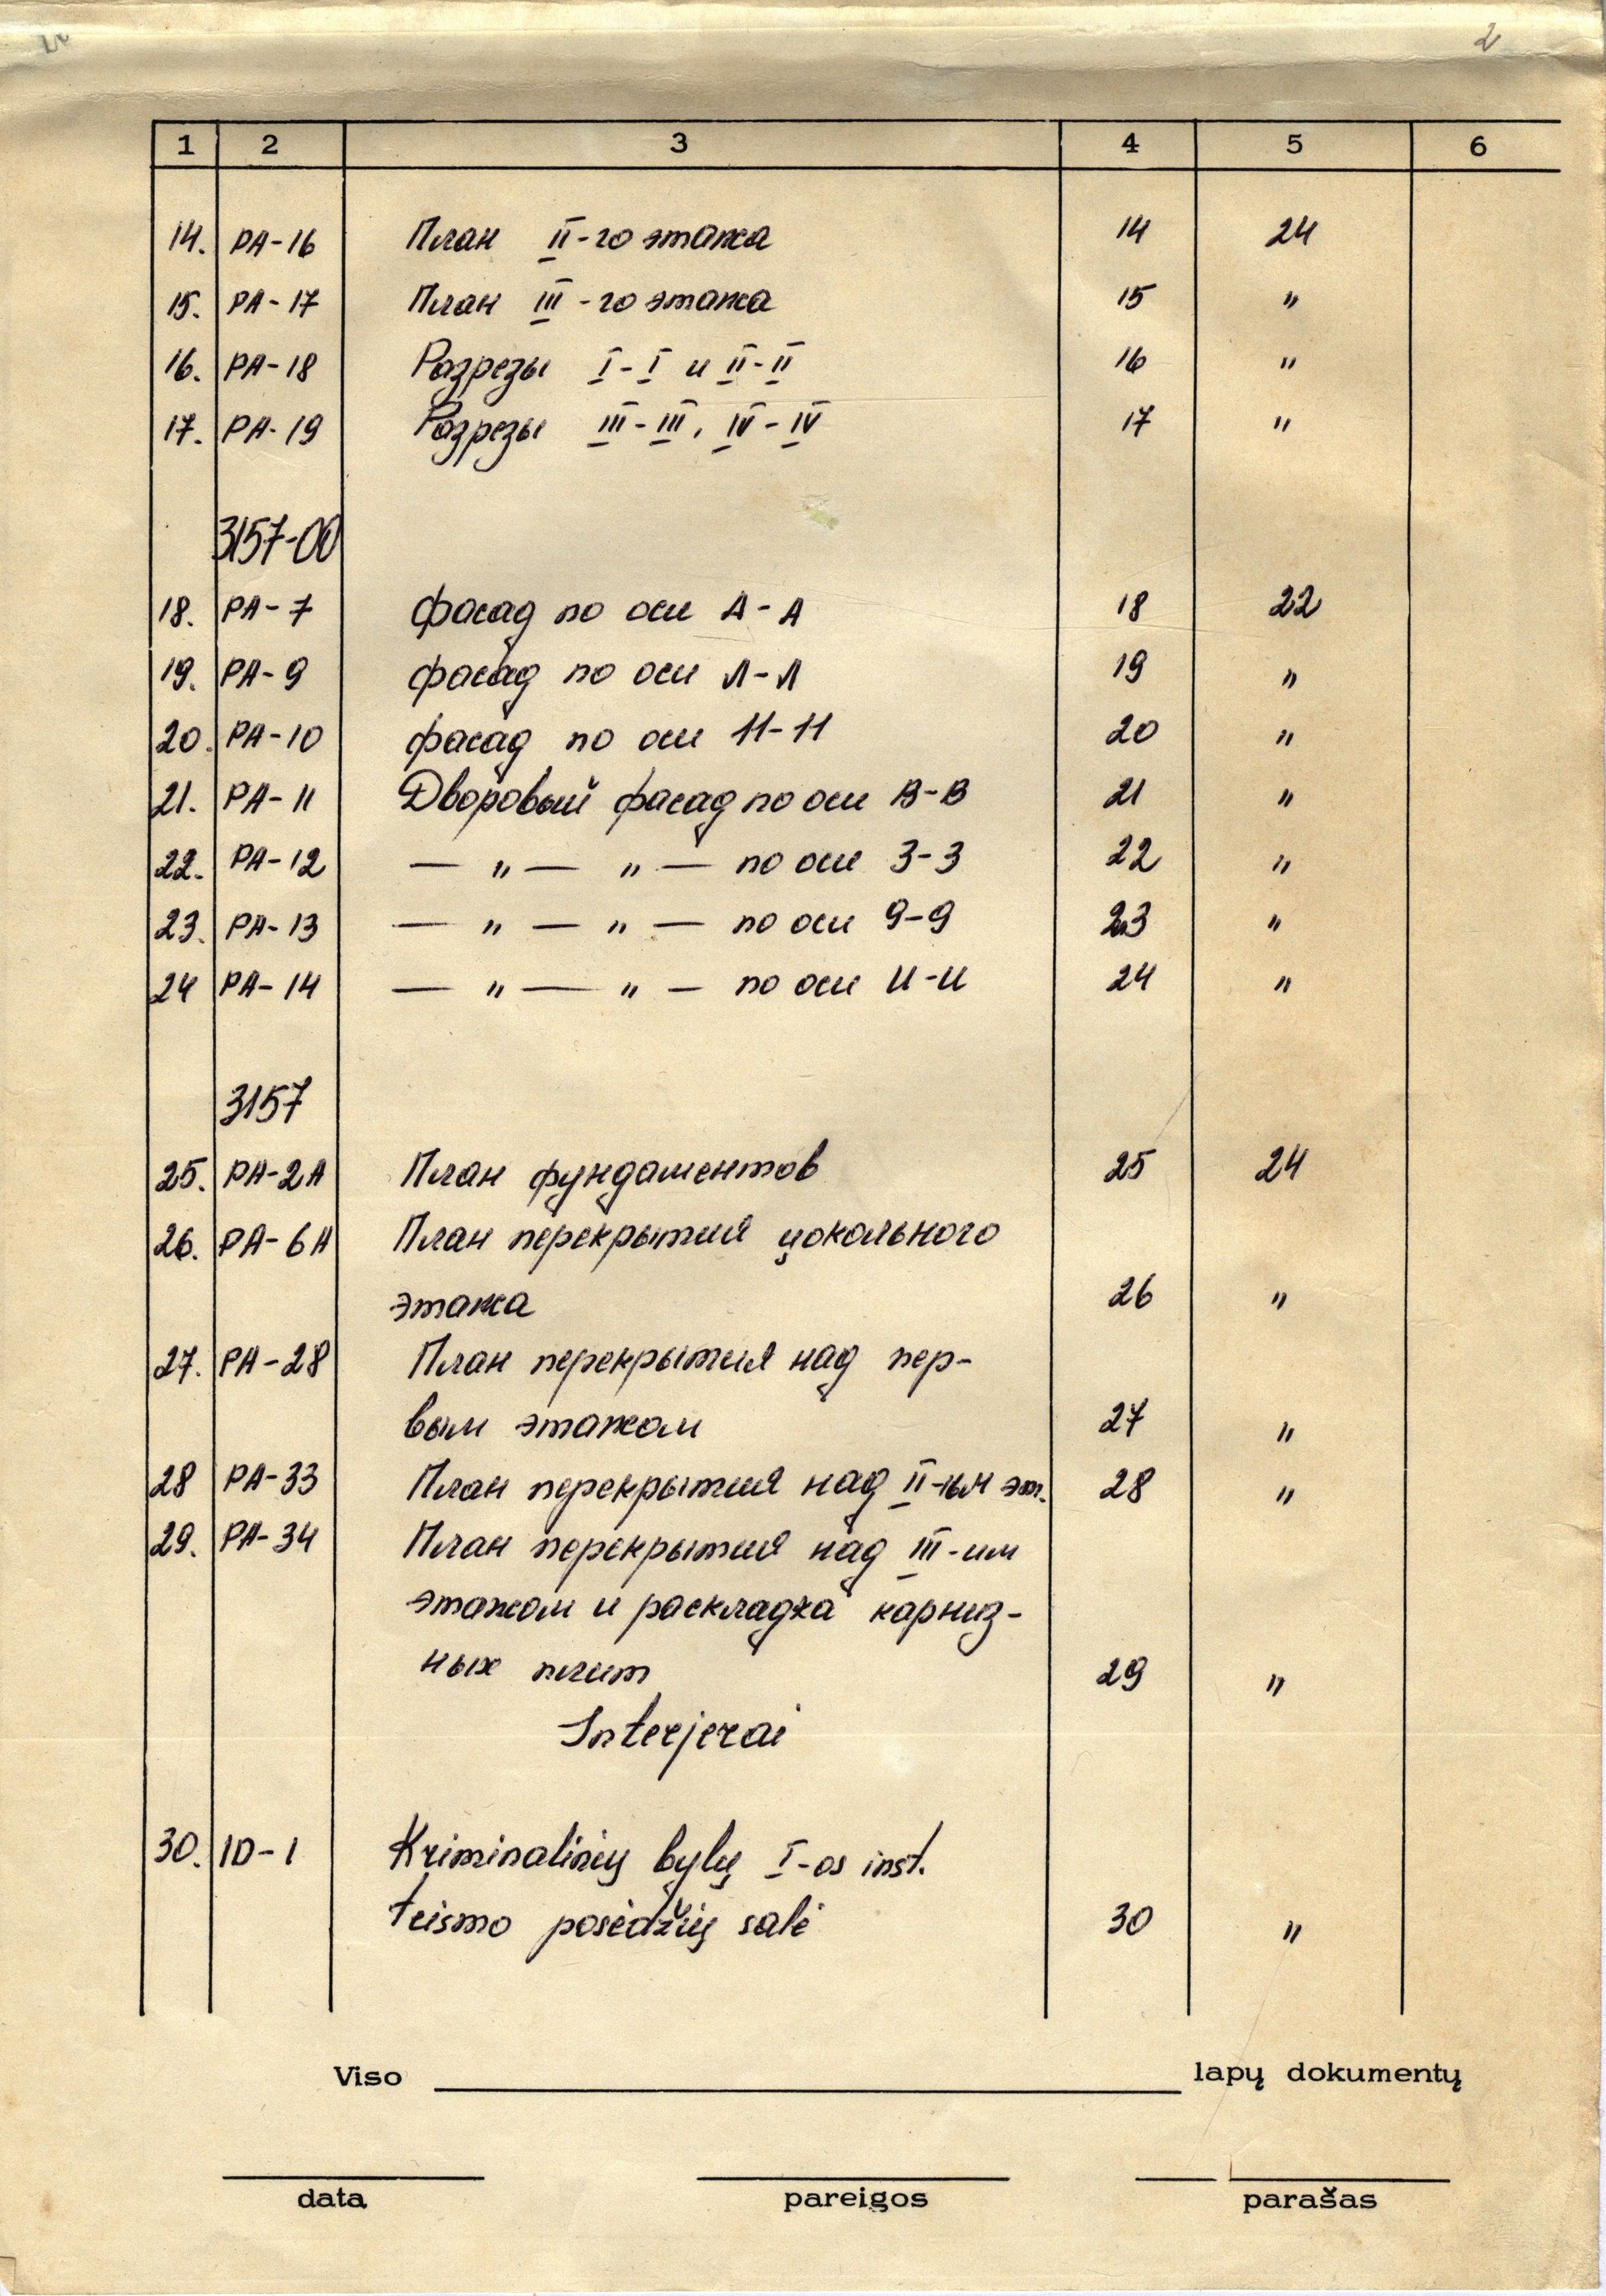 2
1 2 3 4 5 6
14. РА-16 План II-го этажа 14 24
15. РА-17 План III-го этажа 15 "
16. РА-18 Разрезы I-I и II-II 16 "
17. РА-19 Разрезы III-III, IV-IV 17 "
3157-00
18. РА-7 фасад по оси А-А 18 22
19. РА-9 фасад по оси Л-Л 19 "
20. РА-10 фасад по оси 11-11 20 "
21. РА-11 Дворовый фасад по оси В-В 21 "
22. РА-12 — " — " — по оси 3-3 22 "
23. РА-13 — " — " — по оси 9-9 23 "
24 РА-14 — " — " — по оси И-И 24 "
3157
25. РА-2А План фундаментов 25 24
26. РА-6А План перекрытия цокольного
этажа 26 "
27. РА-28 План перекрытия над пер-
вым этажом 27 "
28 РА-33 План перекрытия над II-ым эт. 28 "
29. РА-34 План перекрытия над III-им
этажом и раскладка карниз-
ных плит 29 "
Interjerai
30. ID-1 Kriminalinių bylų I-os inst.
teismo posėdžių salė 30 "
Viso lapų dokumentų
data pareigos parašas